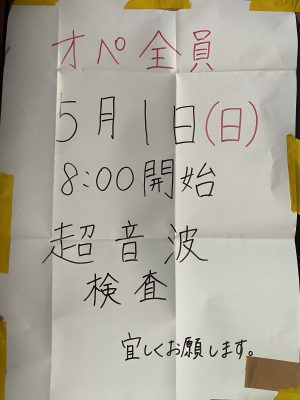 オペ全員
5月1日(日)
8:00開始
超音波
検査
宜しくお願します。